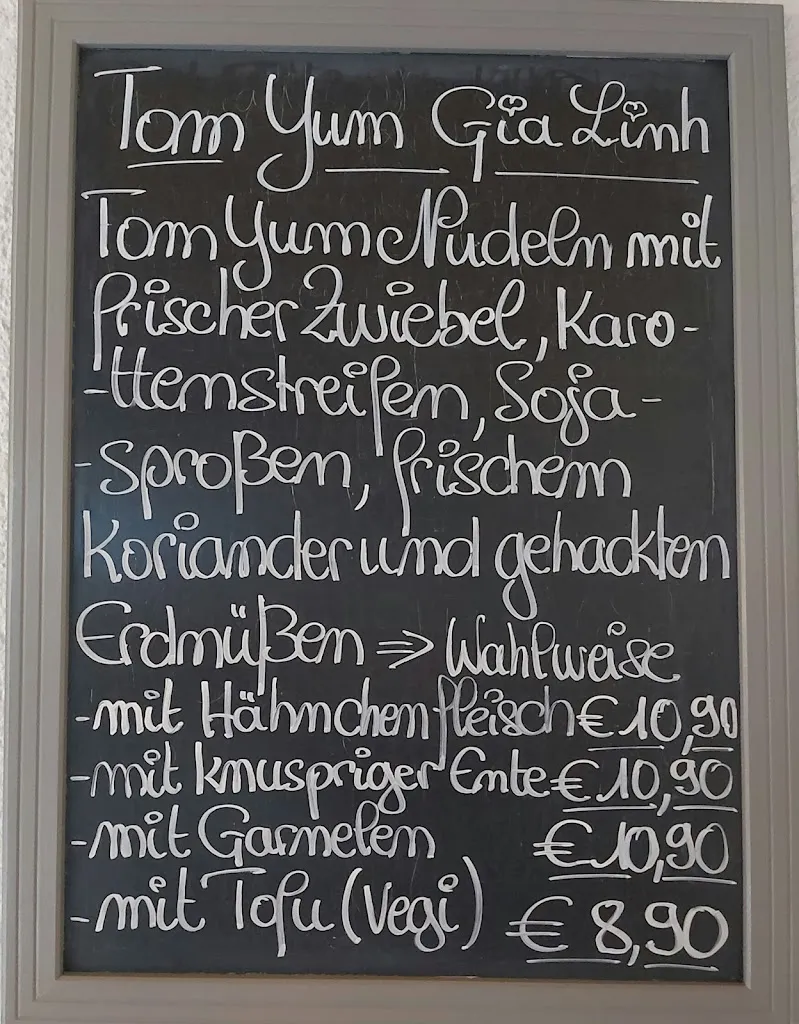 Tom Yum Gia Linh
Tom Yum Nudeln mit
frischer Zwiebel, Karo-
-ttenstreifen, Soja-
-sproßen, frischem
Koriander und gehackten
Erdnüßen => Wahlweise
-mit Hähnchenfleisch € 10,90
-mit knuspriger Ente € 10,90
-mit Garnelen € 10,90
-mit Tofu (Vegi) € 8,90